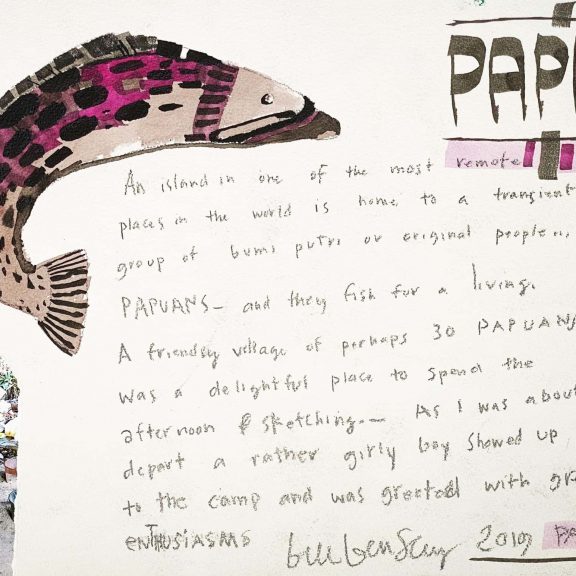 PAP
remote
An island in one of the most
places in the world is home to a transient
group of bumi putri or original people,
PAPUANS- and they fish for a living.
A friendly village of perhaps 30 PAPUANS
was a delightful place to spend the
afternoon & sketching.- As I was about
depart a rather girly boy showed up
to the camp and was greeted with gr
enTHUSIASMS
2019 PA